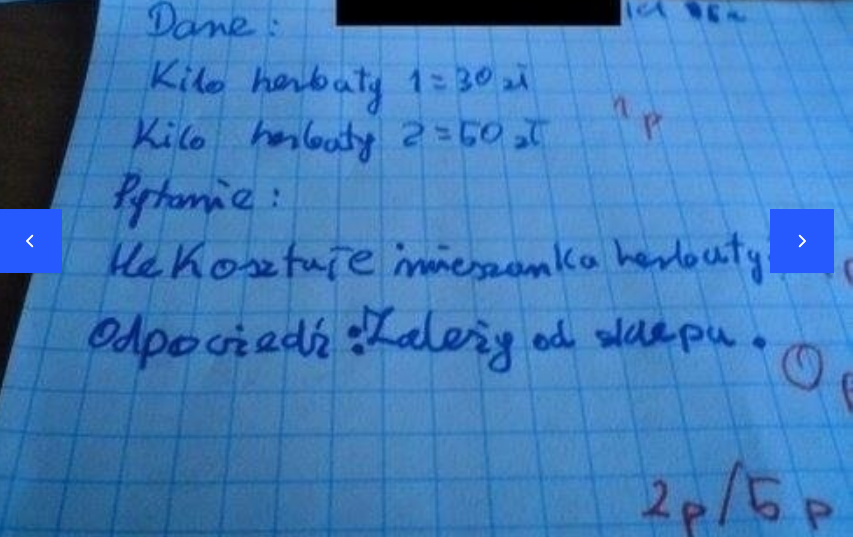 Dane:
Kilo herbaty 1 = 30 zł
Kilo herbaty 2 = 50 zł
1 p
Pytanie:
Ile Kosztuje mieszanka herbaty
Odpowiedź: Zależy od sklepu.
2p/5p